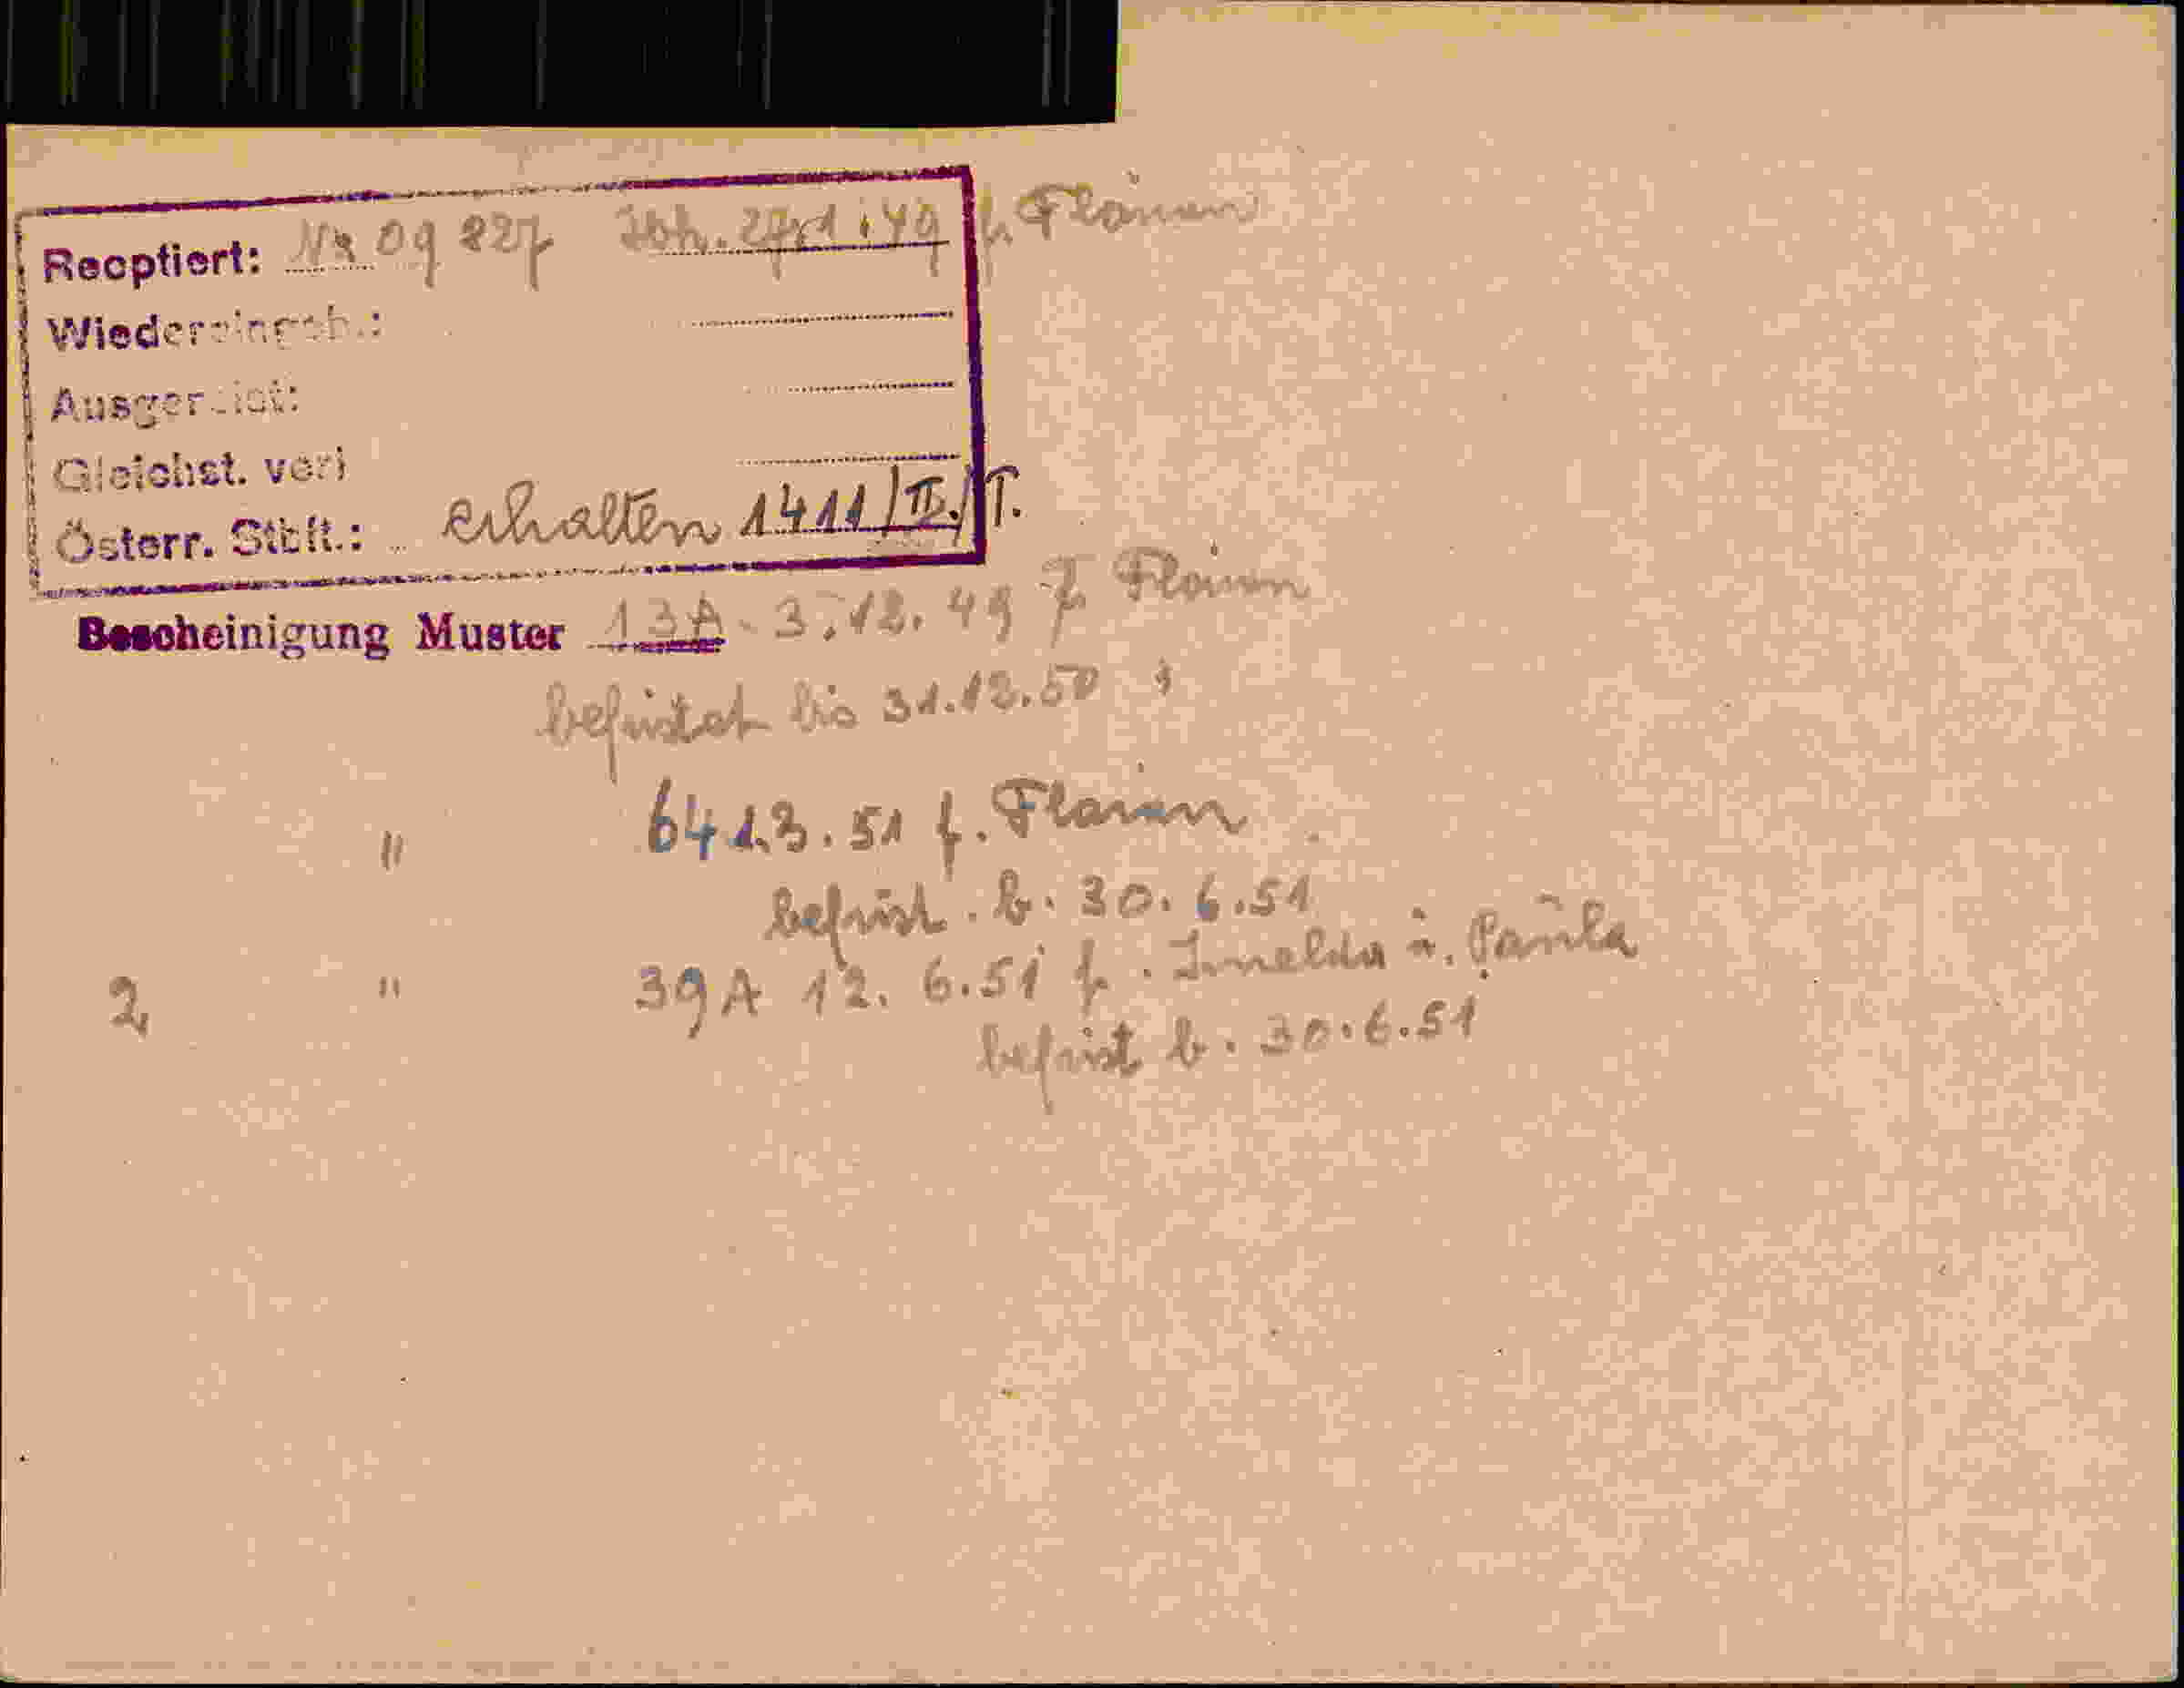 Reoptiert: Nr 09 827 Ibk. 27.1.49 f. Florian
Wiedereingeb.:
Ausgereist:
Gleichst. verl
Österr. Stbft.: erhalten 1411/II./T.
Bescheinigung Muster 13A. 3.12.49 f. Florian
befristet bis 31.12.50
" 64 1.3.51 f. Florian
befrist. b. 30.6.51
2 " 39A 12.6.51 f. Imelda u. Paula
befrist b. 30.6.51